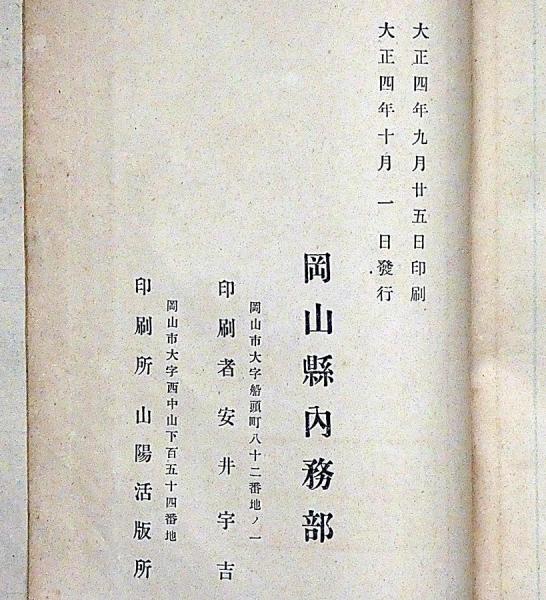 大正四年九月廿五日印刷
大正四年十月一日發行
岡山縣內務部
岡山市大字船頭町八十二番地ノ一
印刷者安井宇吉
岡山市大字西中山下百五十四番地
印刷所山陽活版所